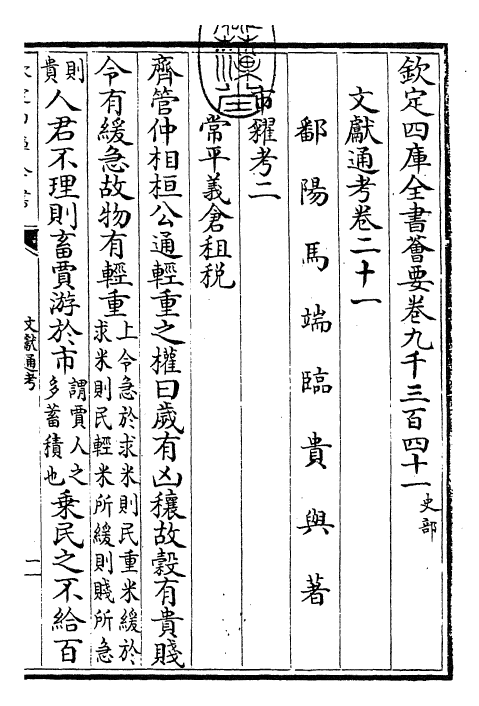 欽定四庫全書薈要卷九千三百四十一史部
文獻通考卷二十一
鄱陽馬端臨貴與著
市糴考二
常平義倉租税
齊管仲相桓公通輕重之權曰歲有凶穰故穀有貴賤
令有緩急故物有輕重上令急於求米則民重米緩於
求米則民輕米所緩則賤所急
則
貴人君不理則畜賈游於市謂賈人之
多蓄積也乗民之不給百
文獻通考
一